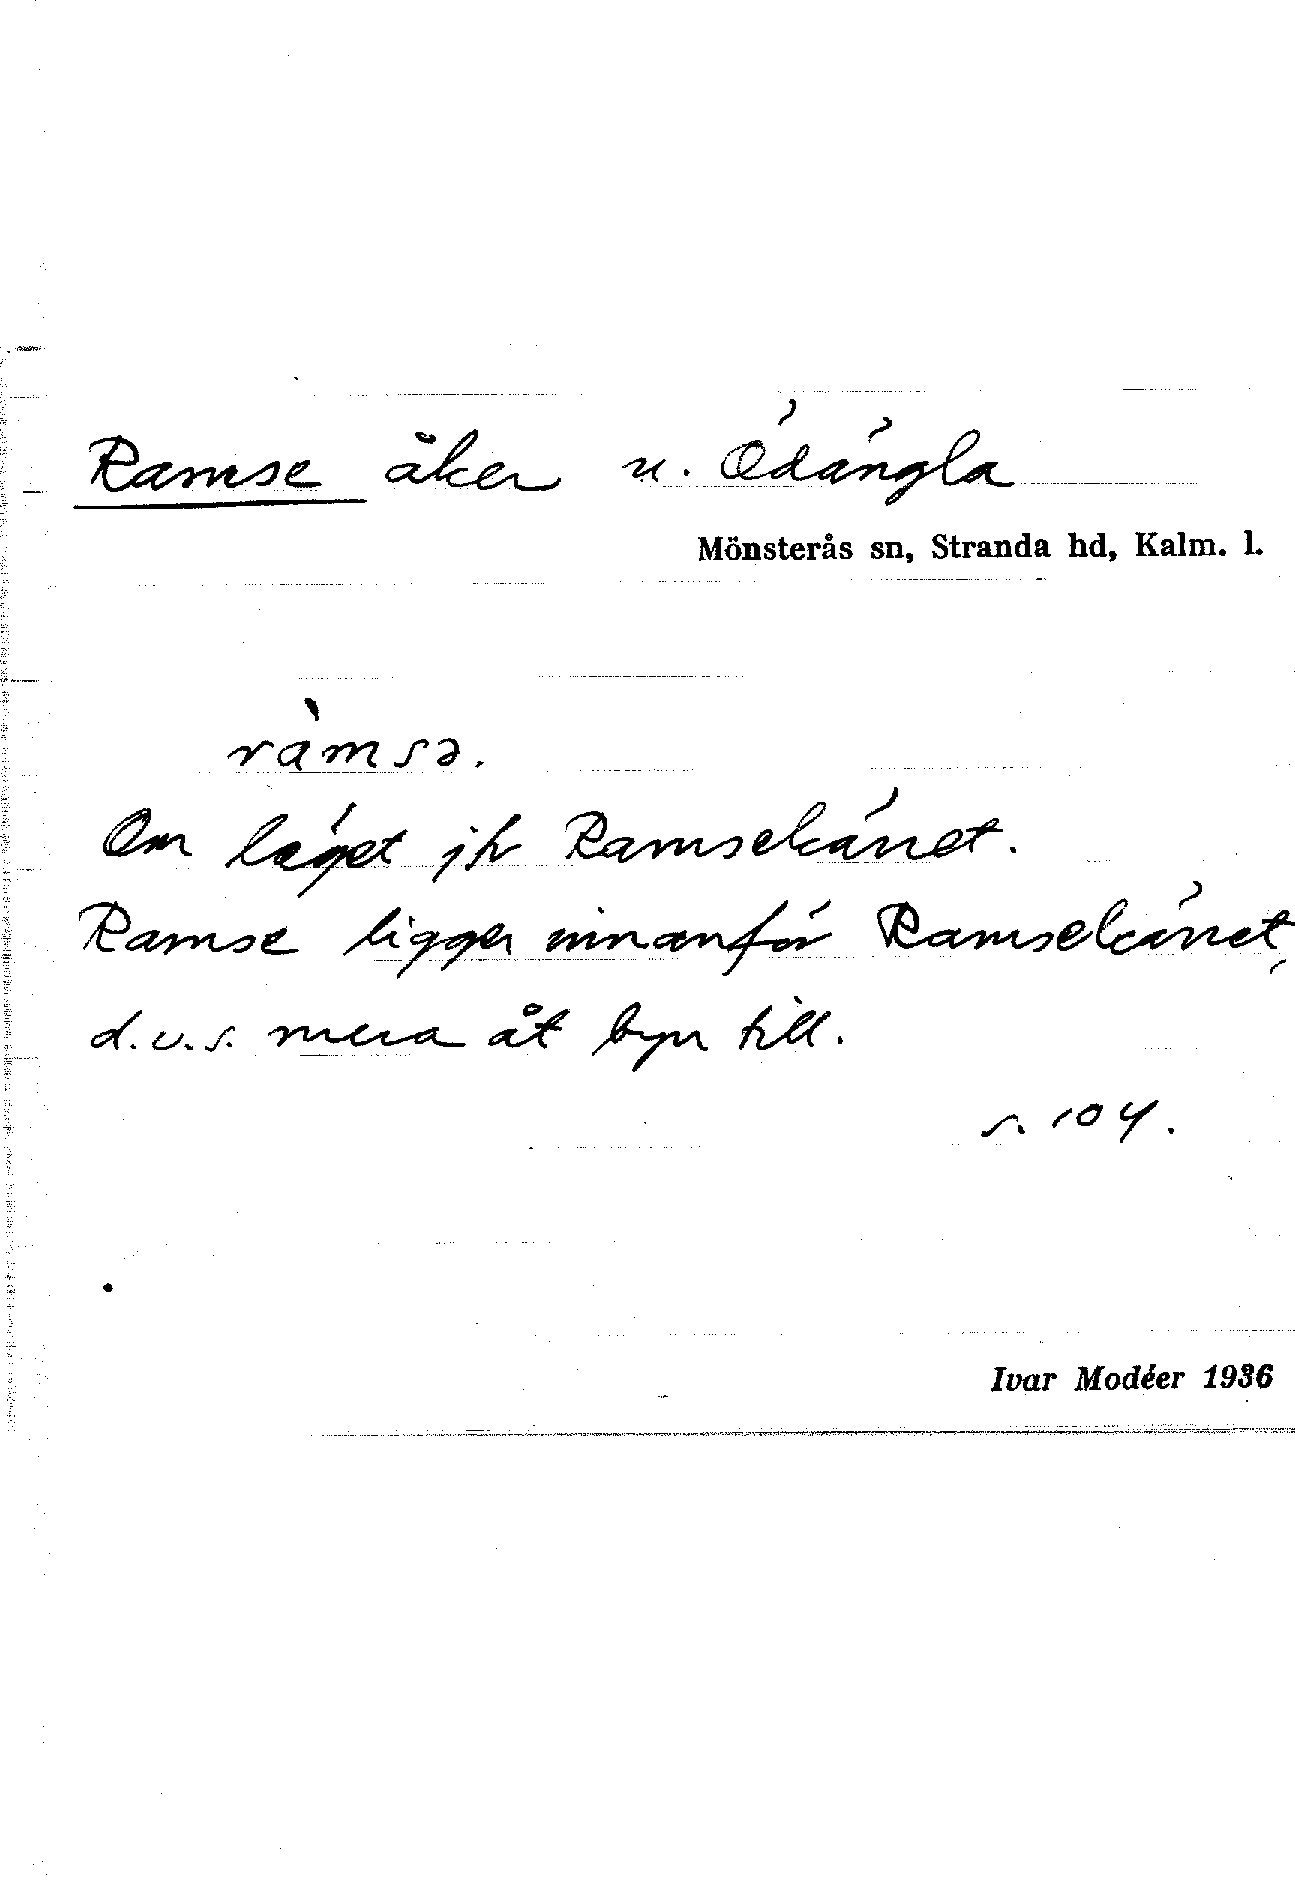 Ramse åker u. Ödängla
Mönsterås sn, Stranda hd, Kalm. l.
ràmsə.
Om läget jfr Ramsekänet.
Ramse ligger innanför Ramsekänet,
d.v.s. mera åt byn till.
s. 104.
Ivar Modéer 1936